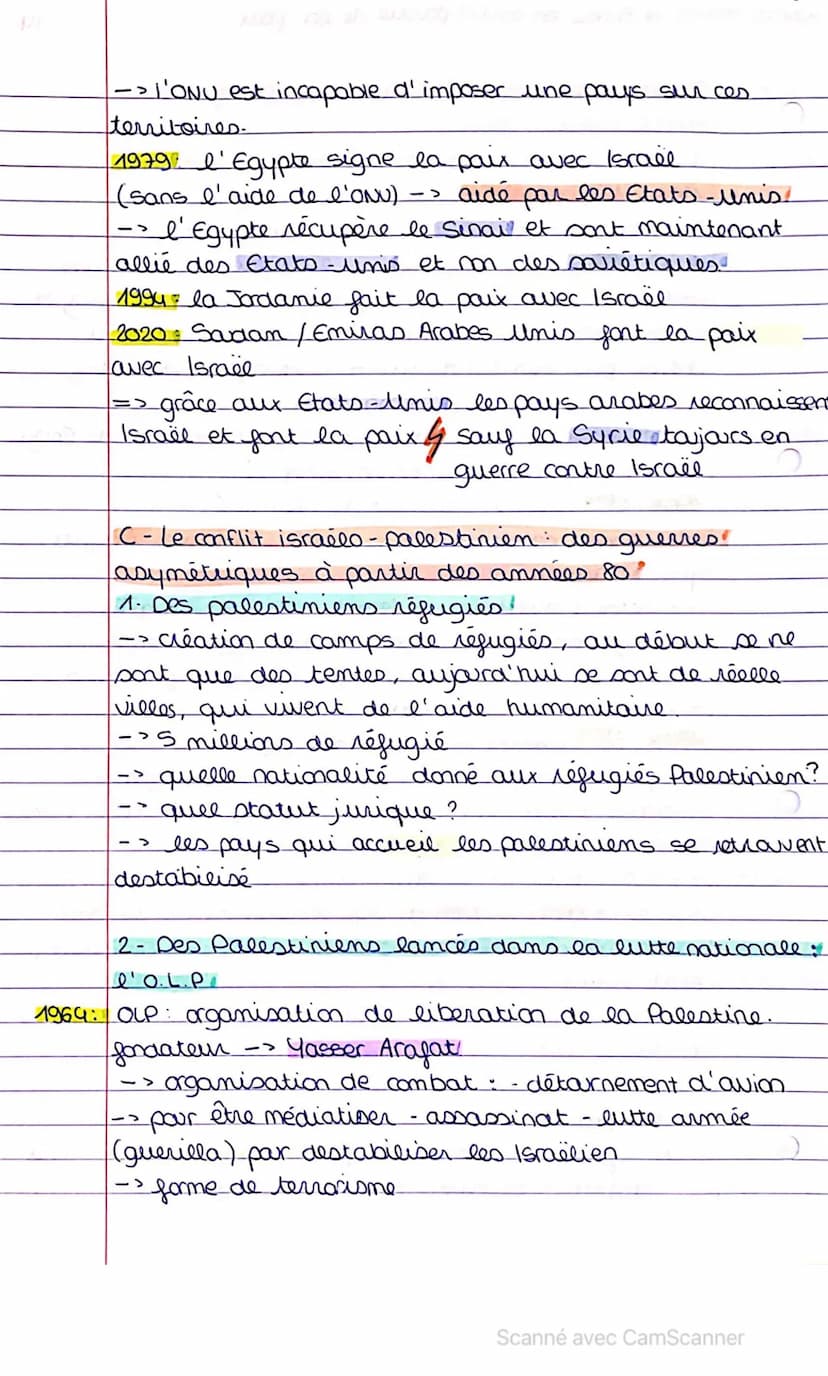 -> l'ONU est incapable d'imposer une pays sur ces
territoires.
1979: l'Egypte signe la paix avec Israël
(sans l'aide de l'ONU) -> aidé par les Etats-Unis
-> l'Egypte récupère le Sinaï et sont maintenant
allié des Etats-Unis et non des soviétiques.
1994: la Jordanie fait la paix avec Israël
2020: Sudan / Emiras Arabes Unis font la paix
avec Israël
=> grâce aux Etats-Unis les pays arabes reconnaissent
Israël et font la paix sauf la Syrie toujours en
guerre contre Israël
C - Le conflit israélo-palestinien : des guerres
asymétriques à partir des années 80
1. Des palestiniens réfugiés
-> création de camps de réfugiés, au début se ne
sont que des tentes, aujourd'hui se sont de réelle
villes, qui vivent de l'aide humanitaire.
-> 5 millions de réfugié
-> quelle nationalité donné aux réfugiés Palestinien?
-> quel statut jurique ?
-> les pays qui accueil les palestiniens se retrouvent
destabilisé
2- Des Palestiniens lancés dans la lutte nationale :
l'O.L.P
1964: OLP : organisation de liberation de la Palestine.
fondateur -> Yasser Arafat
-> organisation de combat : - détournement d'avion
-> pour être médiatiser - assassinat - lutte armée
(guerilla) par destabiliser les Israëlien
-> forme de terrorisme
Scanné avec CamScanner